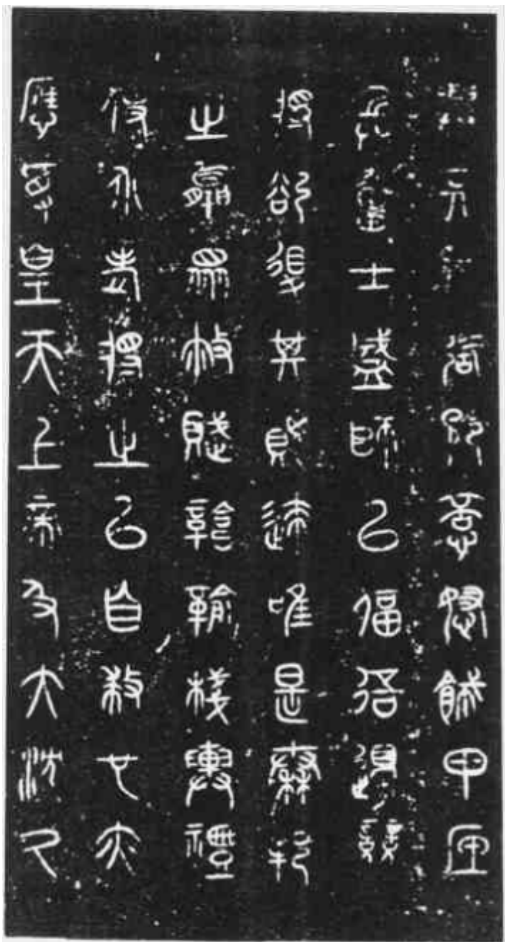 意怒飾甲底
兵奮士盛師以偪吾邊競
將欲復其賕迹唯是秦邦
之羸眾敝賦輸棧輿禮
使介老將之以自救也亦
應受皇天上帝及大沈久